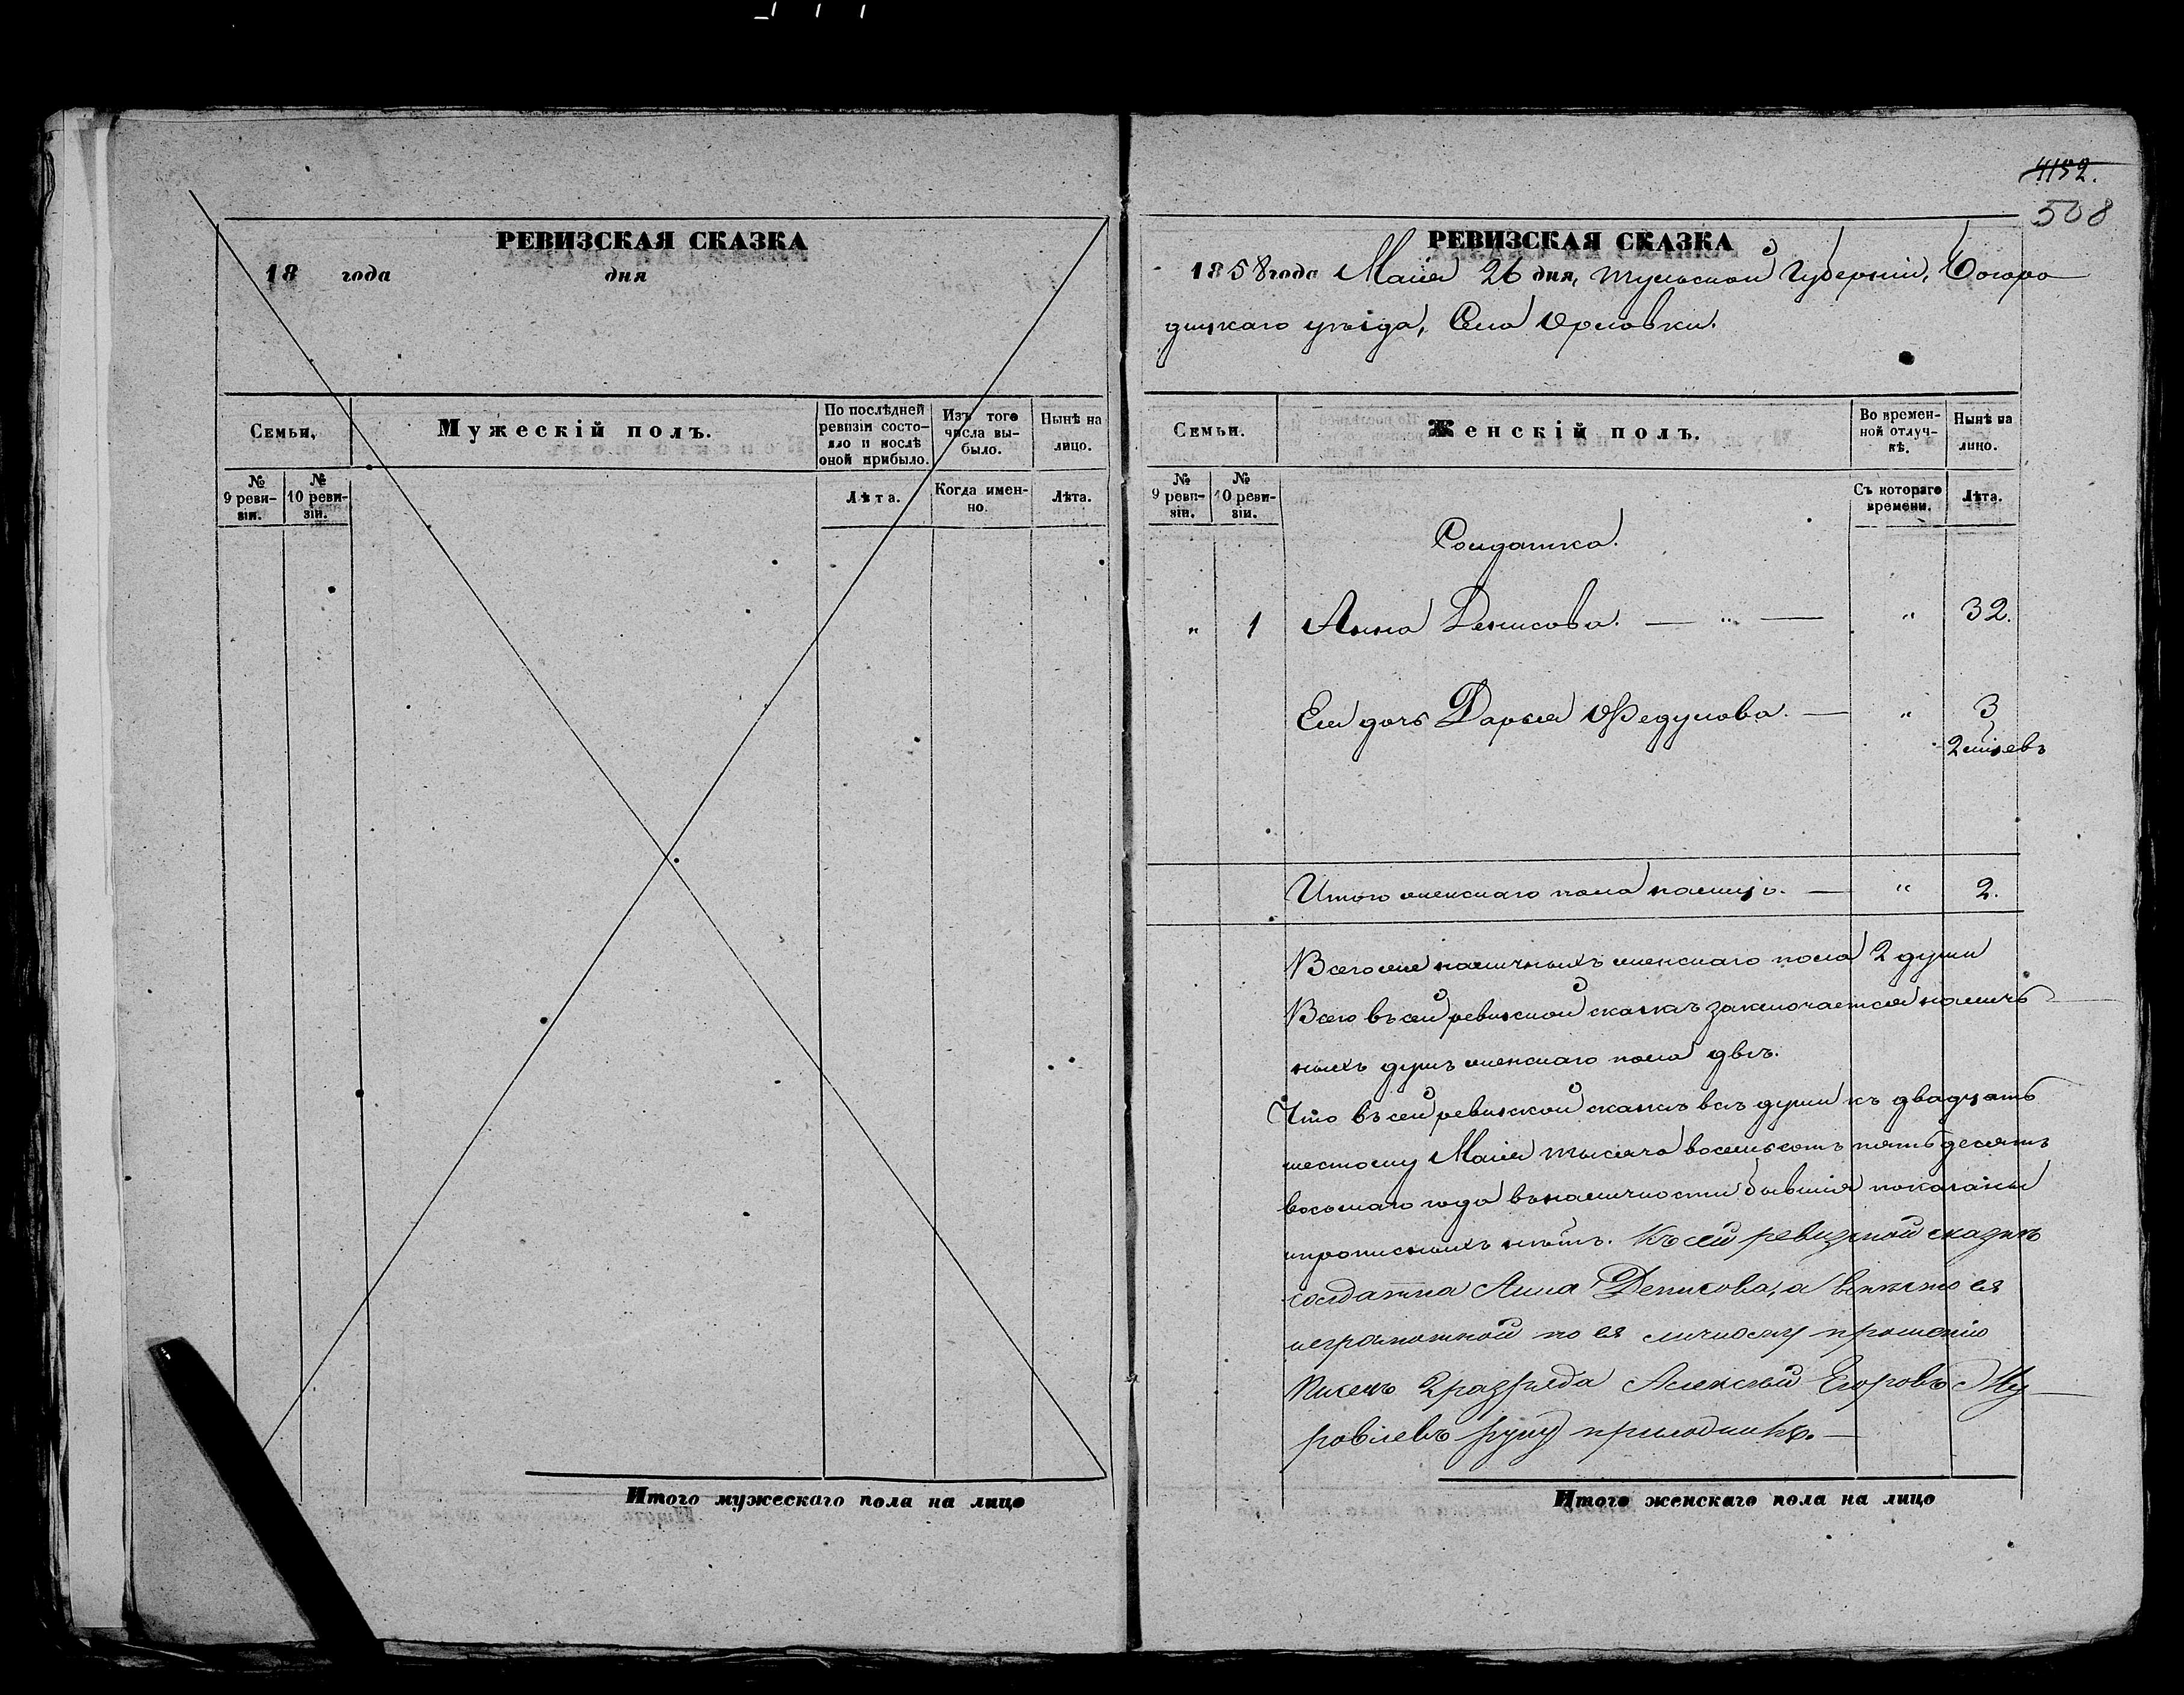 РЕВИЗСКАЯ СКАЗКА
18 года дня
Семьи,
Мужескій полъ.
По послѣдней ревизіи состояло и послѣ оной прибыло.
Изъ того числа выбыло.
Нынѣ на лицо.
№ 9 ревизіи.
№ 10 ревизіи.
Лѣта.
Когда именно.
Лѣта.
Итого мужескаго пола на лицо
4152.
508
РЕВИЗСКАЯ СКАЗКА
1858 года Маія 26 дня, Тульской Губерніи, Богоро
дицкаго уѣзда, Села Орловки.
Семьи.
Женскій полъ.
Во временной отлучкѣ.
Нынѣ на лицо.
№ 9 ревизіи.
№ 10 ревизіи.
Съ котораго времени.
Лѣта.
Солдатка.
" 1 Анна Денисова. — " — " 32.
Ея дочь Дарья Ѳедулова. — " 3
Итого женскаго пола налицо. — " 2.
Всего же наличныхъ женскаго пола 2 души
Всего въ сей ревизской сказкѣ заключается налич
ныхъ душъ женскаго пола двѣ.
Что въ сей ревизской сказкѣ всѣ души къ двадцать
шестому Маія тысяча восемьсотъ пятьдесятъ
восьмаго года въ наличности бывшія показаны
и прописныхъ нѣтъ. Къ сей ревизской сказкѣ
солдатка Анна Денисова, а вмѣсто ея
неграмотной по ея личному прошенію
Писецъ 2 разряда Алексѣй Егоровъ Му
ровлевъ руку приложилъ. —
Итого женскаго пола на лицо